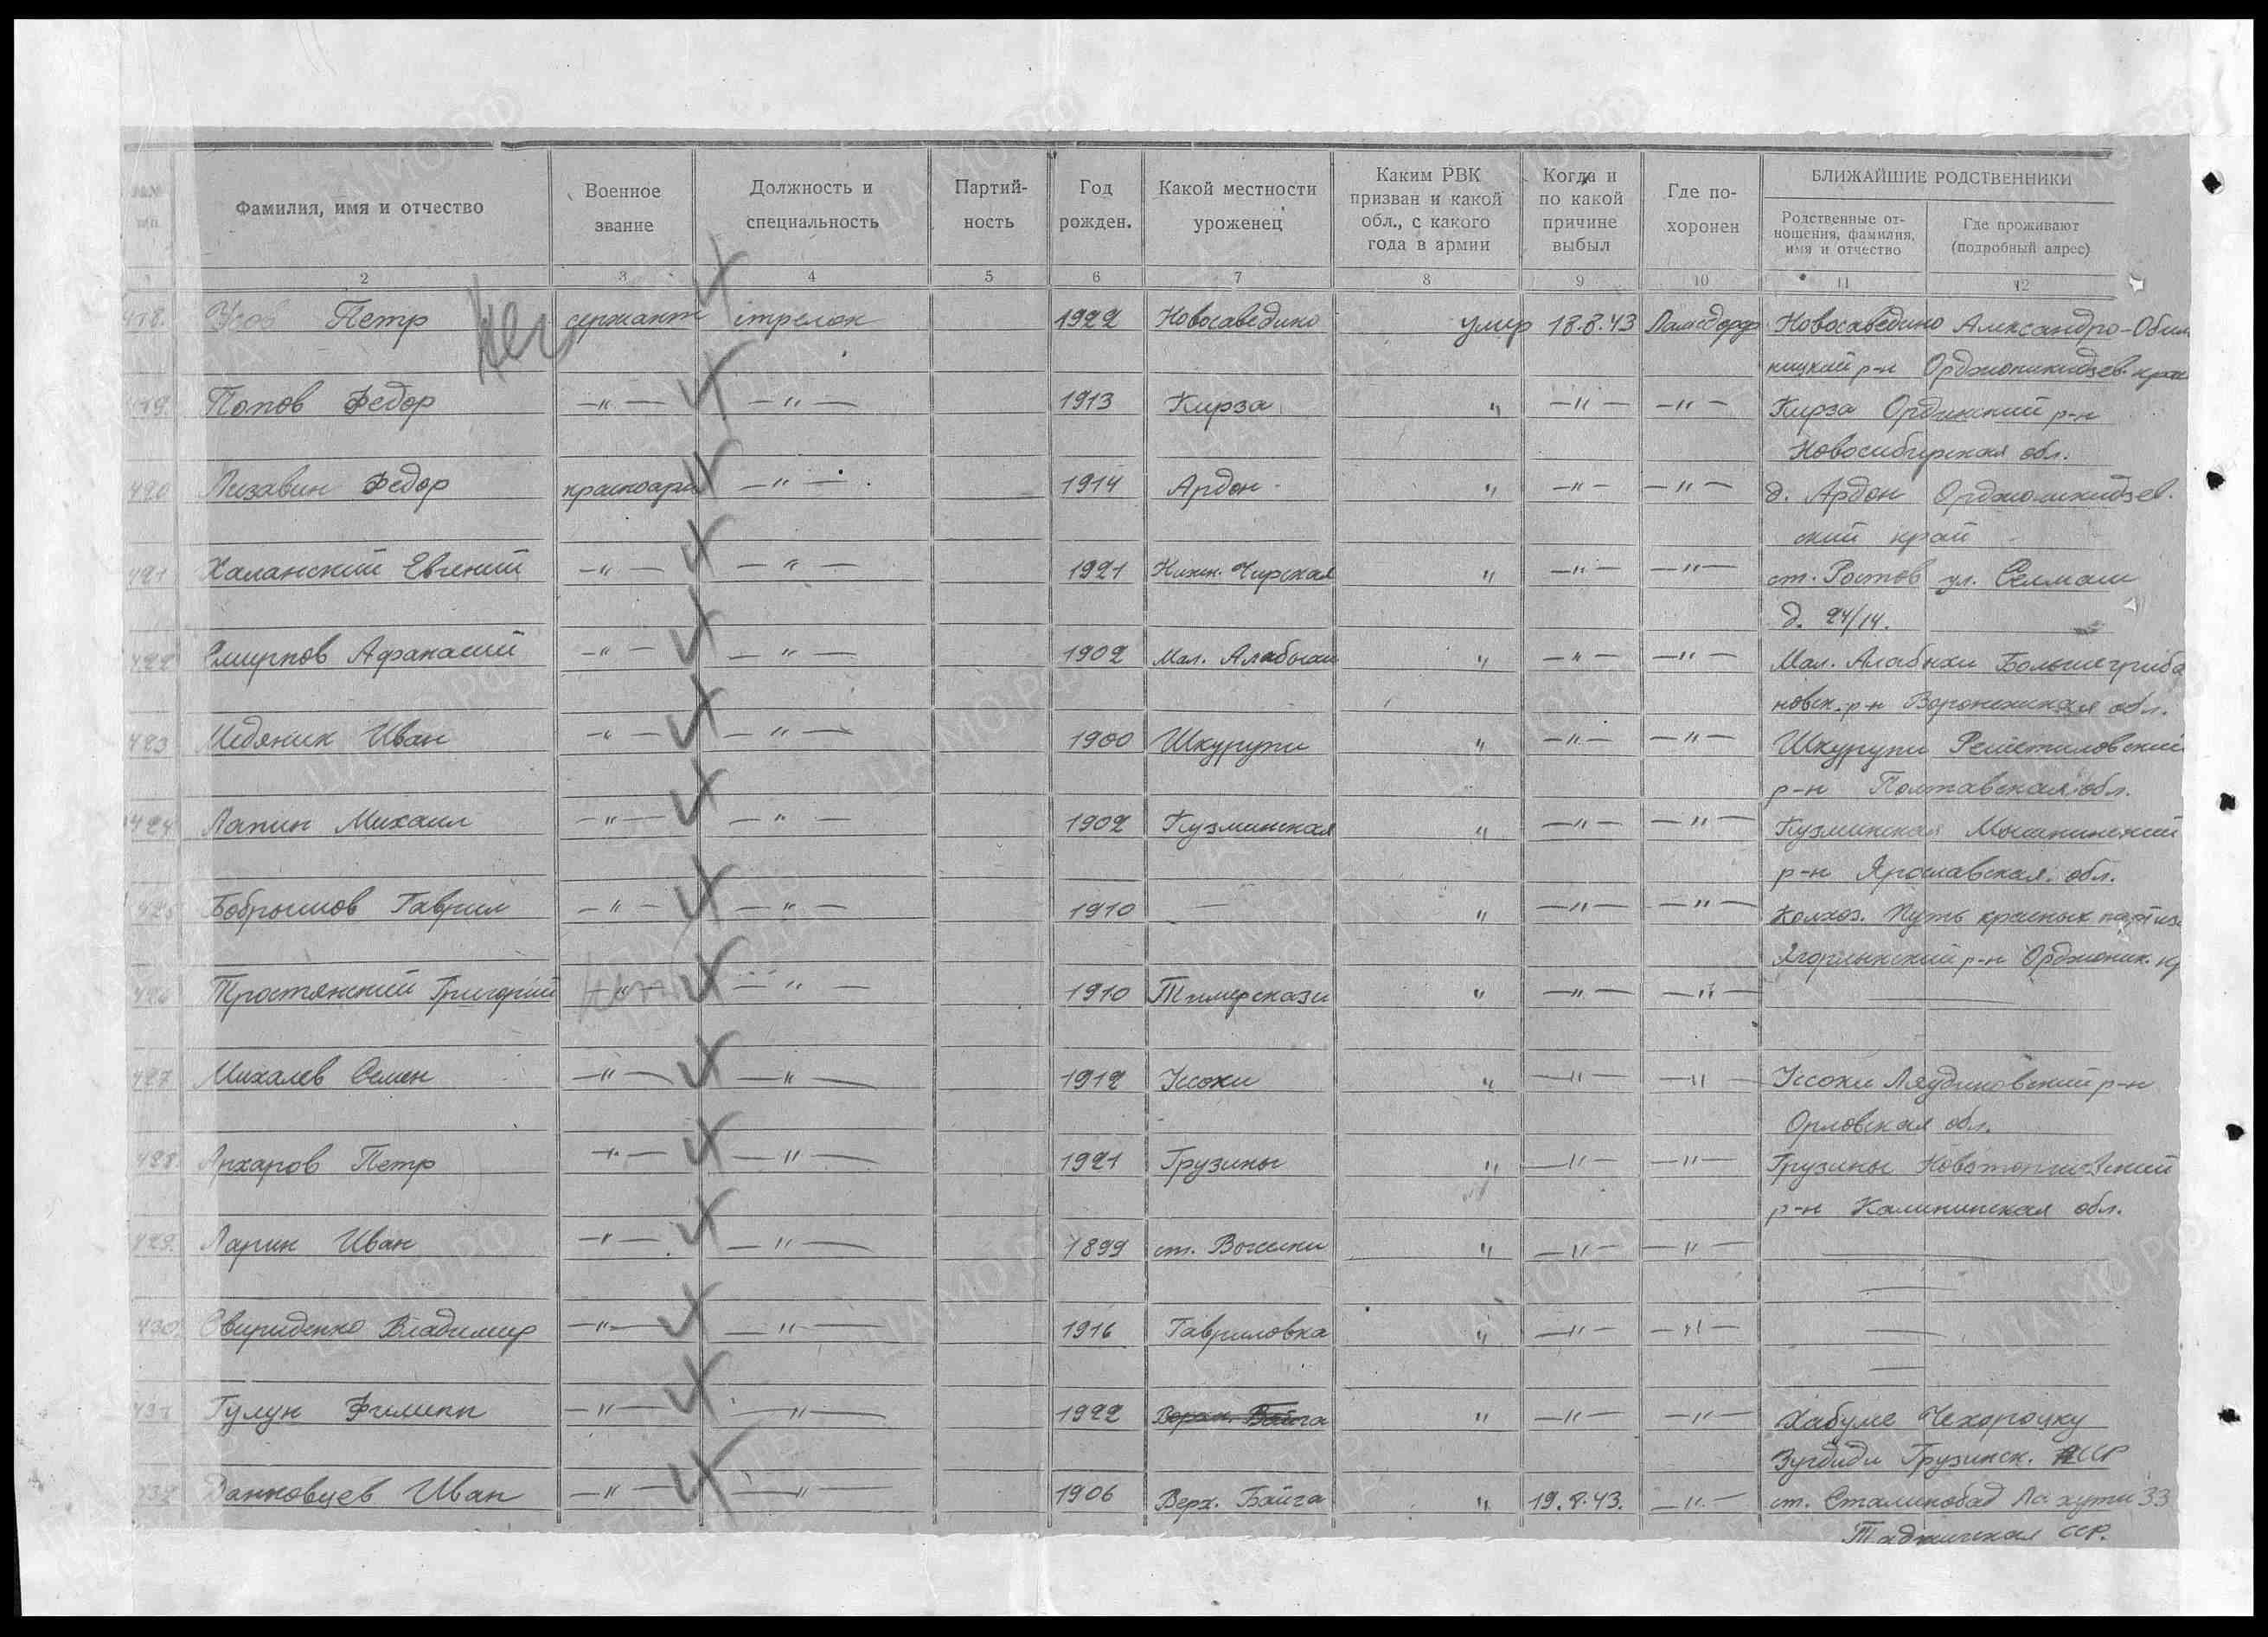 Фамилия, имя и отчество
Военное звание
Должность и специальность
Партий-ность
Год рожден.
Какой местности уроженец
Каким РВК призван и какой обл., с какого года в армии
Когда и по какой причине выбыл
Где по-хоронен
БЛИЖАЙШИЕ РОДСТВЕННИКИ
Родственные от-ношения, фамилия, имя и отчество
Где проживают (подробный адрес)
2 3 4 5 6 7 8 9 10 11 12
Усов Петр сержант стрелок 1922 Новосаведино умер 18.8.43 Ламсдорф Новосаведино Александро-Обиль
ницкий р-н Орджоникидзев. край
Попов Федор —"— —"— 1913 Кирза " —"— —"— Кирза Ордынский р-н
Новосибирская обл.
420 Лизавин Федор красноарм —"— 1914 Ардон " —"— —"— д. Ардон Орджоникидзев.
ский край
421 Халанский Евгений —"— —"— 1921 Нижн. Чирская " —"— —"— ст. Ростов ул. Селмаш
д. 24/14.
422 Смирнов Афанасий —"— —"— 1902 Мал. Алабухи " —"— —"— Мал. Алабухи Большегриба
новск. р-н Воронежская обл.
423 Медяник Иван —"— —"— 1900 Шкурупи " —"— —"— Шкурупи Решетиловский
р-н Полтавская обл.
424 Лапин Михаил —"— —"— 1902 Кузминская " —"— —"— Кузминская Мышкинский
р-н Ярославская обл.
425 Бобрышов Гаврил —"— —"— 1910 — " —"— —"— Колхоз. Путь красных партиз
Ягорлыкский р-н Орджоник. кр
426 Тростянский Григорий —"— —"— 1910 " —"— —"— ——
427 Михалев Семен —"— —"— 1912 Усохи " —"— —"— Усохи Людиновский р-н
Орловская обл.
428. Архаров Петр —"— —"— 1921 Грузины " —"— —"— Грузины Новоторжовский
р-н Калининская обл.
429. Ларин Иван —"— —"— 1899 ст. " —"— —"— ——
430 Свириденко Владимир —"— —"— 1916 Гавриловка " —"— —"— ——
431 Гулун Филипп —"— —"— 1922 Верхн. Байга " —"— —"— Хабуме
Зугдиди Грузинск. ССР
432 Данковцев Иван —"— —"— 1906 Верх. Байга " 19.8.43. —"— ст. Сталинобад Лахути 33
Таджикская ССР.
ЦАМО.РФ